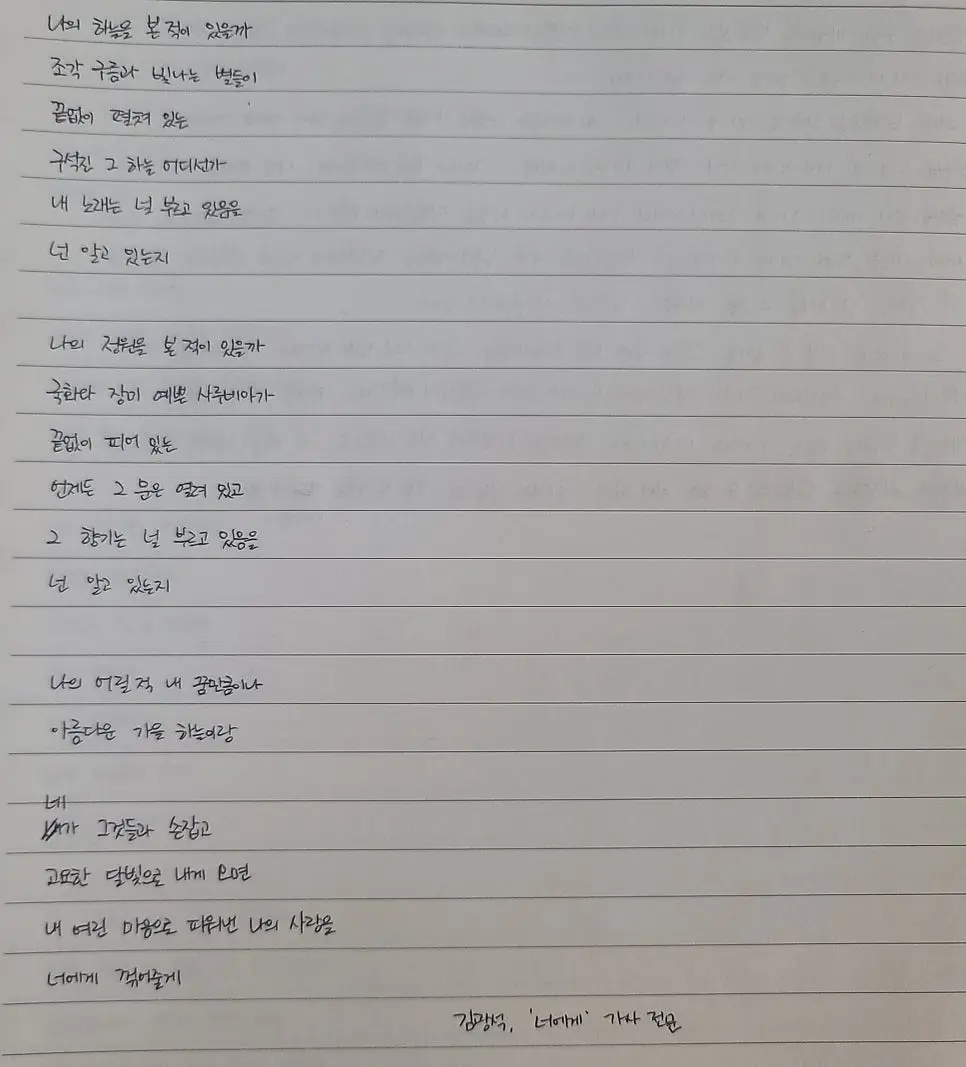 나의 하늘을 본 적이 있을까
조각 구름과 빛나는 별들이
끝없이 펼쳐 있는
구석진 그 하늘 어디선가
내 노래는 널 부르고 있음을
넌 알고 있는지
나의 정원을 본 적이 있을까
국화와 장미 예쁜 사루비아가
끝없이 피어 있는
언제든 그 문은 열려 있고
그 향기는 널 부르고 있음을
넌 알고 있는지
나의 어릴 적 내 꿈만큼이나
아름다운 가을 하늘이랑
네
가 그것들과 손잡고
고요한 달빛으로 내게 오면
내 여린 마음으로 피워낸 나의 사랑을
너에게 꺾어줄게
김광석, '너에게' 가사 전문